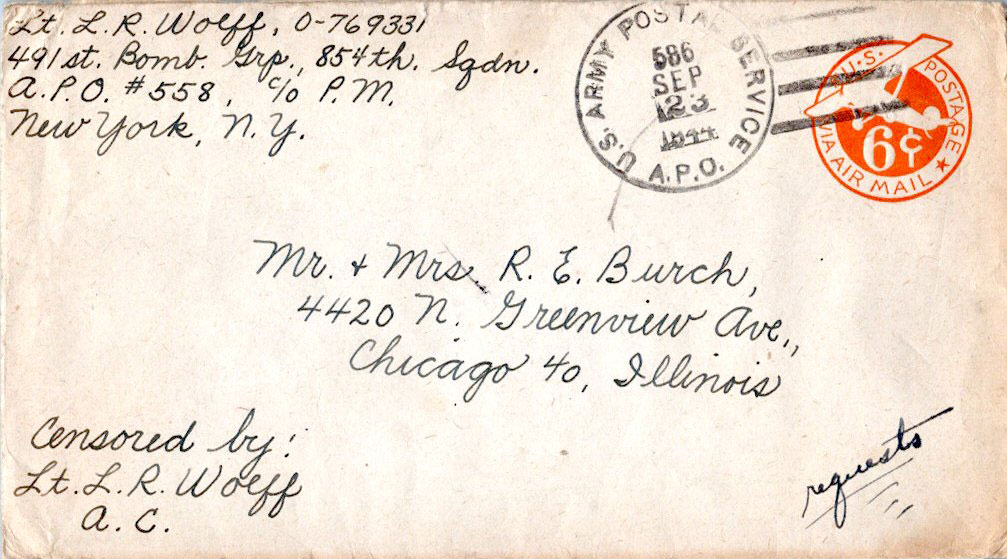 Lt. L. R. Wolff, O-769331
491st. Bomb. Grp., 854th. Sqdn.
A.P.O. #558, c/o P.M.
New York, N.Y.
U.S. ARMY POSTAL SERVICE
586
SEP
23
1944
A.P.O.
U.S. POSTAGE
6¢
VIA AIR MAIL
Mr. + Mrs. R. E. Burch,
4420 N. Greenview Ave.,
Chicago 40, Illinois
Censored by:
Lt. L. R. Wolff
A.C.
requests